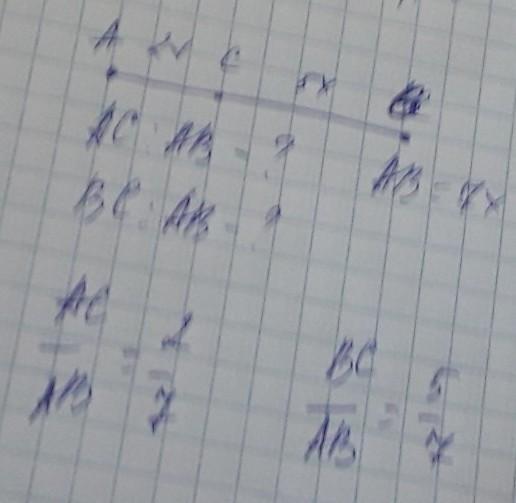 A 2x C 5x
AC : AB = ?
AB = 7x
BC : AB = ?
AC/AB = 2/7
BC/AB = 5/7